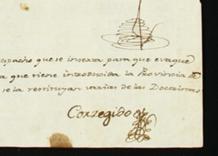 espacho que se insexta para que evaque
a que tiene introducida la Provincia de
se la restituyan varias de las Doctrinas
Corregidor